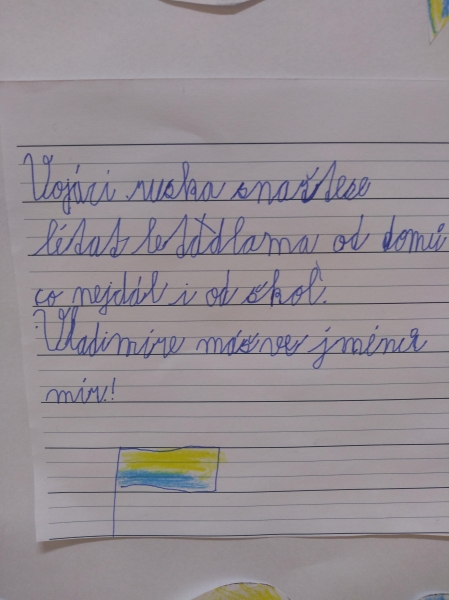 Vojáci ruska snaštese
létat letadlama od domů
co nejdál i od škol.
Vladimíre máš ve jménu
mír!